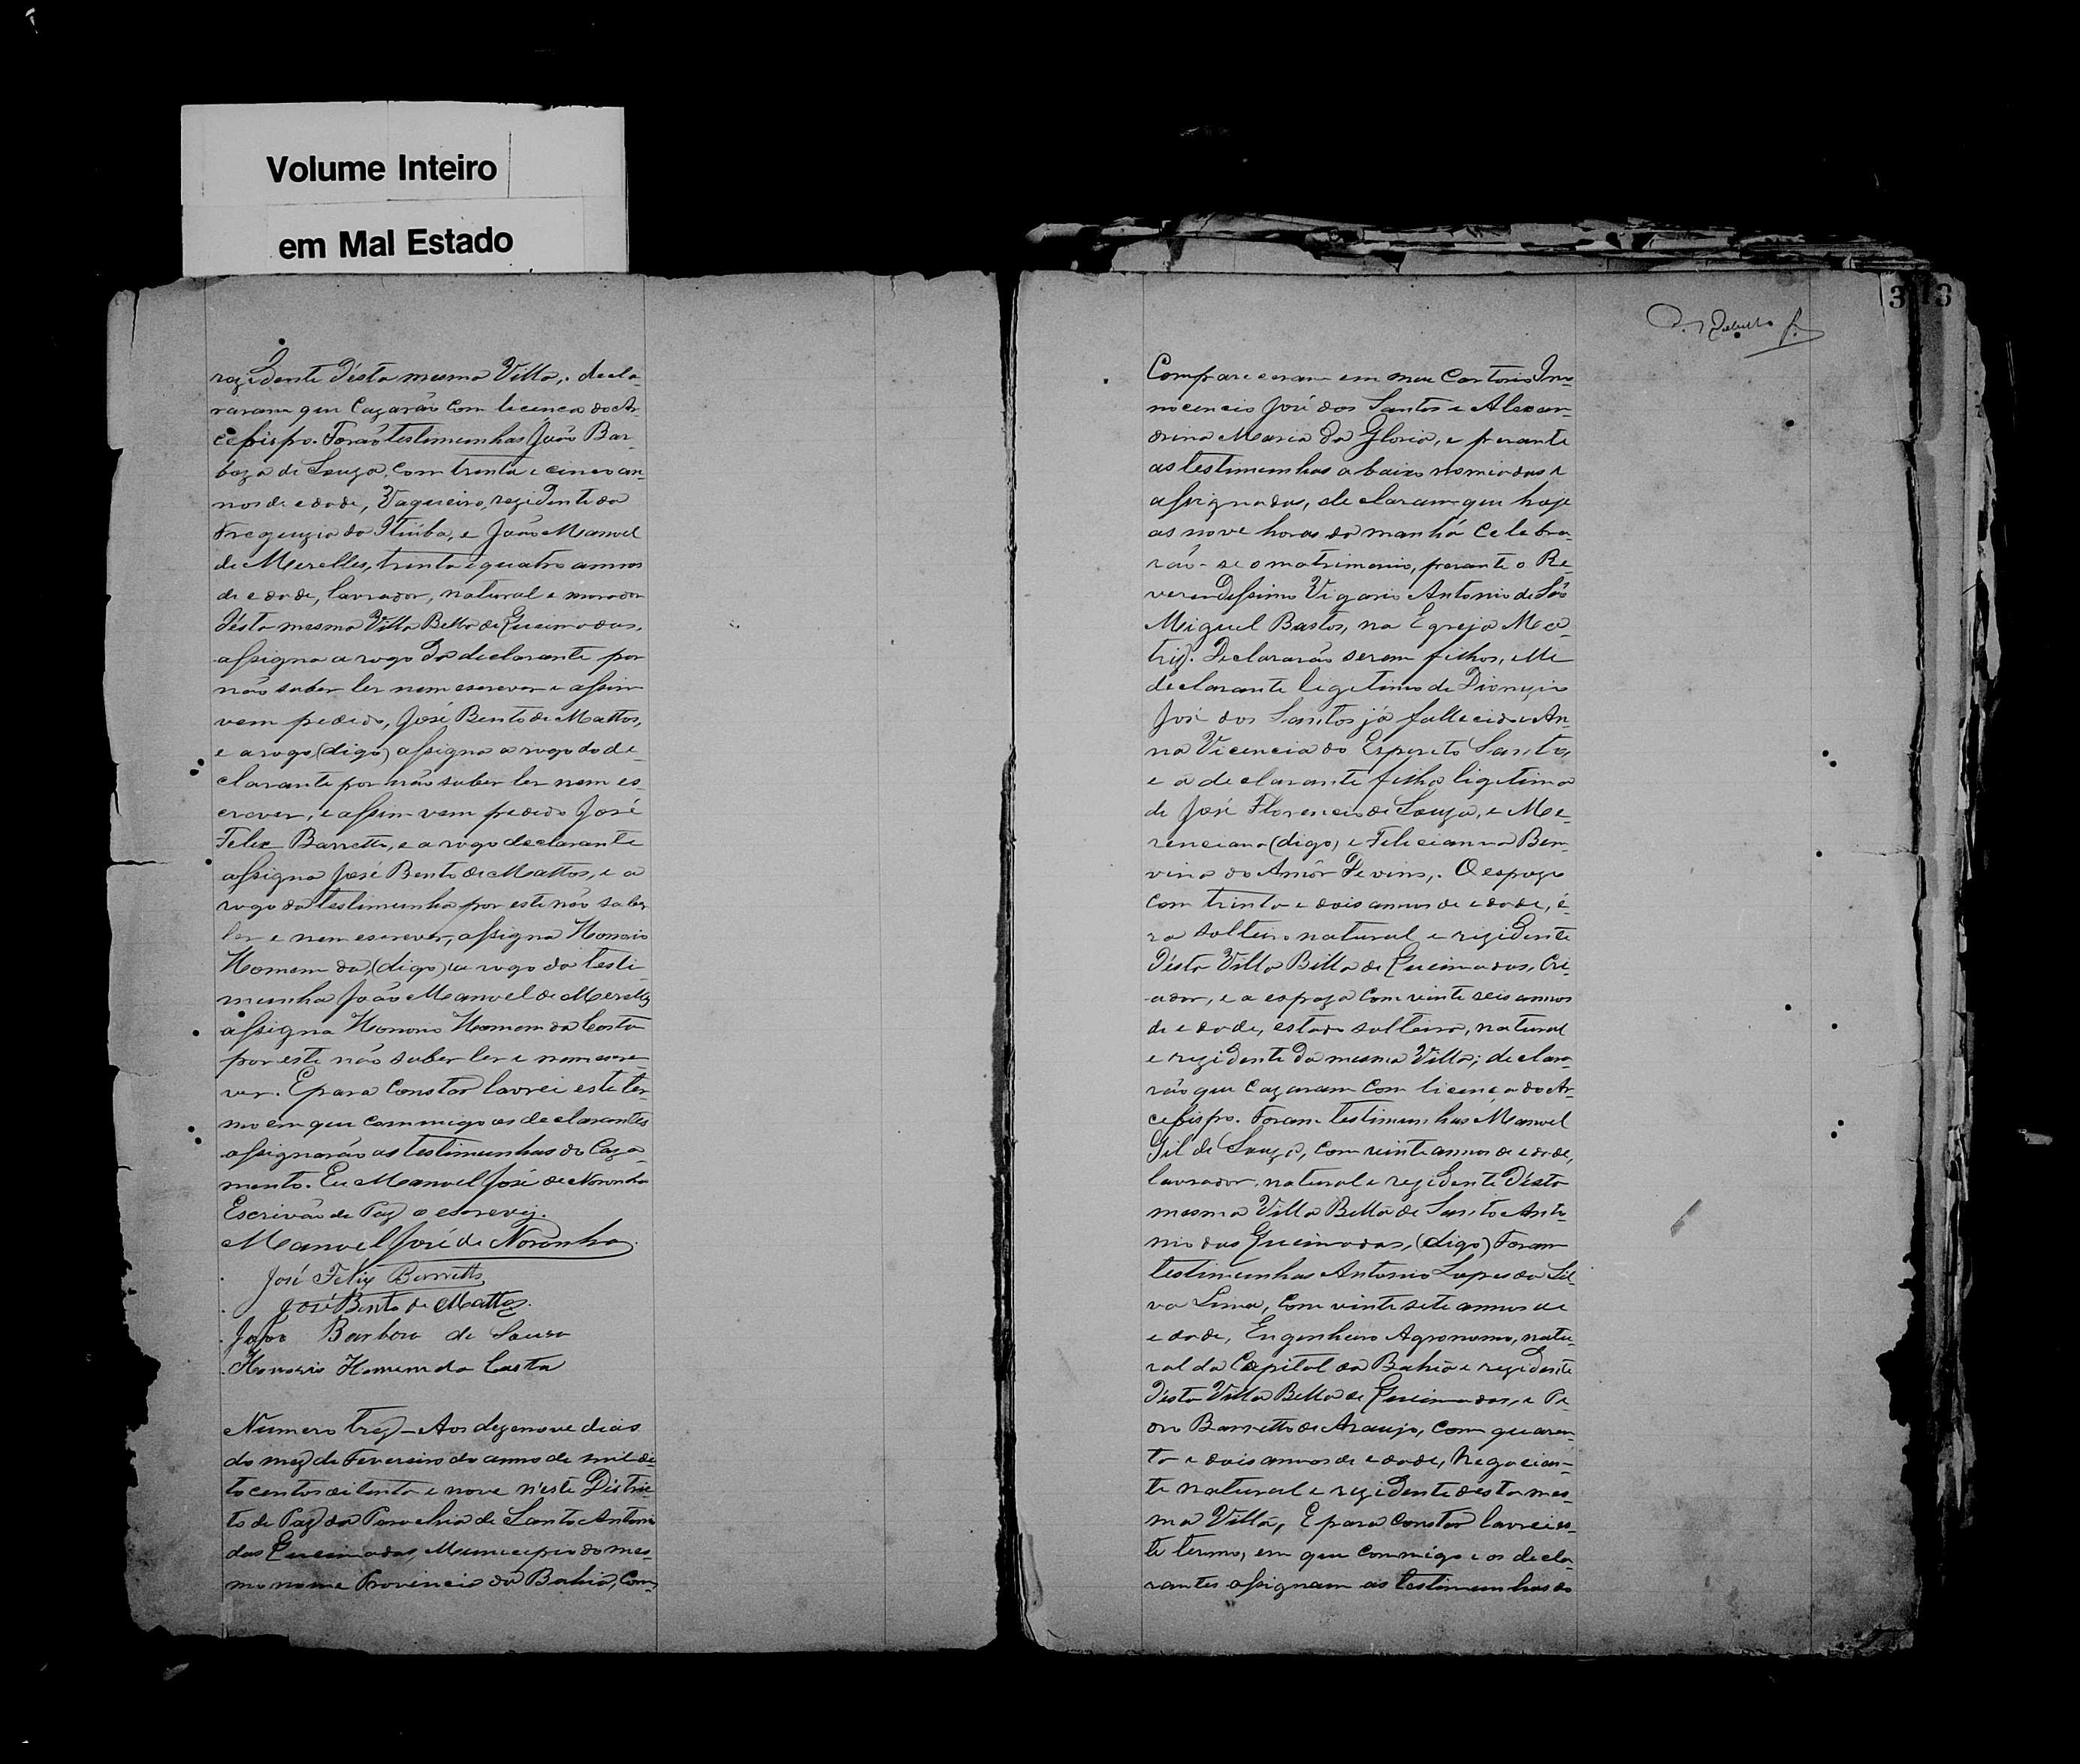 Volume Inteiro
em Mal Estado
rezidente désta mesma Villa,. decla-
raram que Cazarão com licença do Ar-
cebispo. Forão testimunhas João Bar-
boza de Souza, com trinta e cinco an-
nos de edade, Vaqueiro, rezidente da
Freguezia do Itiúba, e João Manoel
de Merelles, trinta e quatro annos
de edade, lavrador, natural e morador
désta mesma Villa Bella de Queimadas,
assigna a rogo do declarante por
não saber ler nem escrever e assim
vem pedido, José Bento de Mattos,
e a rogo (digo) assigna a rogo do de-
clarante por não saber ler nem es-
crever, e assim vem pedido José
Felix Barretto, e a rogo declarante
assigna José Bento de Mattos, e a
rogo da testimunha por este não saber
ler e nem escrever, assigna Honorio
Homem da, (digo) a rogo da testi-
munha João Manoel de Merelles
assigna Honorio Homem da Costa
por este não saber ler e nem escre-
ver. E para Constar lavrei este ter-
mo em que commigo os declarantes
assignarão as testimunhas do Caza-
mento. Eu Manoel José de Noronha
Escrivão de Paz o escrevy.
Manoel José de Noronha
José Felix Barretto
José Bento de Mattos.
João Barboza de Souza
Honorio Homem da Costa
Número trez — Aos dezenove dias
do mez de Fevereiro do anno de mil oi-
tocentos oitenta e nove n'este Distric-
to de Paz da Parochia de Santo Antonio
das Queimadas, Municipio do mes-
mo nome Provincia da Bahia, Com-
3
Compareceram em meu Cartorio Inno-
nocencio José dos Santos e Alexan-
drina Maria da Gloria, e perante
as testimunhas abaixo nomiadas e
assignadas, declaram que hoje
as nove horas da manhã Celebra-
rão-se o matrimonio, perante o Re-
verendissimo Vigario Antonio de São
Miguel Bastos, na Egreja Ma-
triz. Declararão serem filhos, elle
declarante ligitimo de Dionizio
José dos Santos já fallecido e An-
na Vicencia do Espereto Santo,
e a declarante filha ligitima
de José Florencio de Souza, e Me-
renciana (digo) e Felicianna Ben-
vina do Amôr Devino,. O espozo
com trinta e dois annos de edade, é-
ra solteiro natural e rezidente
désta Villa Bella de Queimadas, Cri-
ador, e a espoza com vinte seis annos
de edade, estado solteira, natural
e rezidente da mesma Villa; decla-
rão que Cazaram com licença do Ar-
cebispo. Foram testimunhas Manoel
Gil de Souza, com vinte annos de edade,
lavrador, natural e rezidente désta
mesma Villa Bella de Santo Anto-
nio das Queimadas, (digo) Foram
testimunhas Antonio Lopes da Sil-
va Lima, com vinte sete annos de
edade, Engenheiro Agronomo, natu-
ral da Capital da Bahia e rezidente
désta Villa Bella de Queimadas, e Pe-
dro Barretto de Araujo, com quaren-
ta e dois annos de edade, Negocian-
te natural e rezidente desta mes-
ma Villa, E para Constar lavrei es-
te termo, em que commigo e os decla-
rantes assignam as testimunhas do